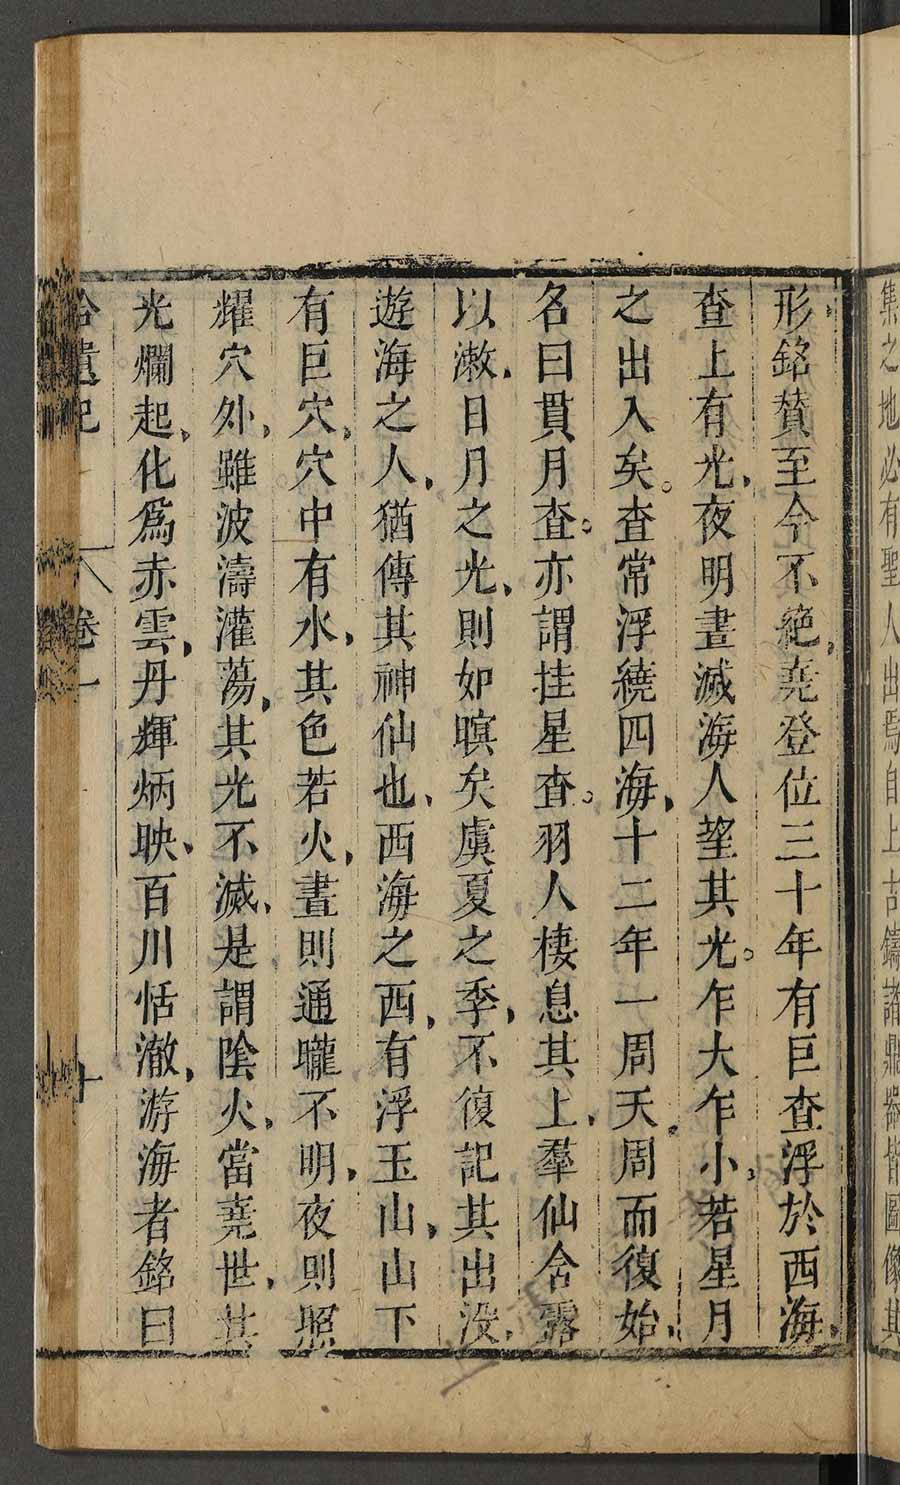 集之地必有聖人出焉自上古鑄諸鼎器皆圖像其
形銘贊至今不絶堯登位三十年有巨查浮於西海
查上有光夜明晝滅海人望其光乍大乍小若星月
之出入矣查常浮繞四海十二年一周天周而復始
名曰貫月查亦謂挂星查羽人棲息其上羣仙含露
以漱日月之光則如暝矣虞夏之季不復記其出没
遊海之人猶傳其神仙也西海之西有浮玉山山下
有巨穴穴中有水其色若火晝則通曨不明夜則照
耀穴外雖波濤灌蕩其光不滅是謂陰火當堯世其
光爛起化爲赤雲丹輝炳映百川恬澈游海者銘曰
拾遺記 卷一 十